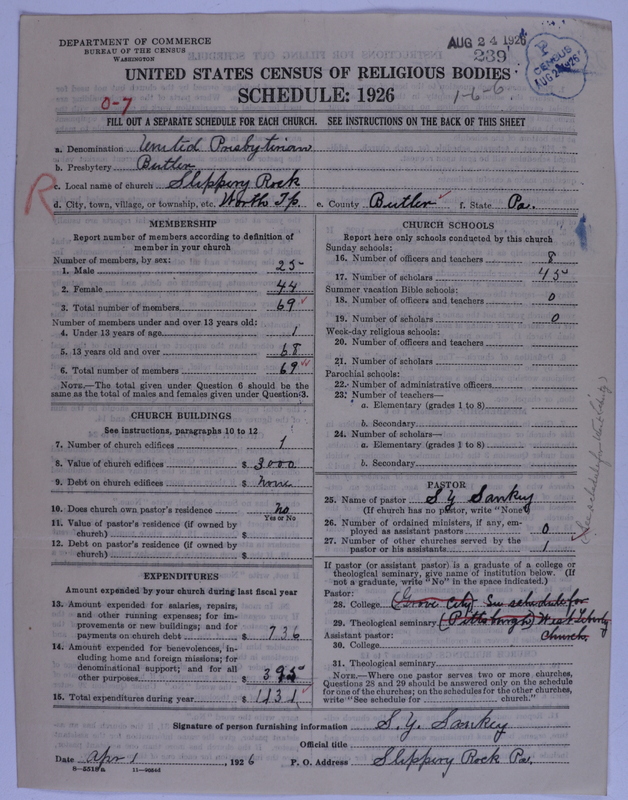 DEPARTMENT OF COMMERCE
BUREAU OF THE CENSUS
WASHINGTON
AUG 24 1926
239
CENSUS
UNITED STATES CENSUS OF RELIGIOUS BODIES
SCHEDULE: 1926
0-7
1-6-6
FILL OUT A SEPARATE SCHEDULE FOR EACH CHURCH. SEE INSTRUCTIONS ON THE BACK OF THIS SHEET
a. Denomination United Presbyterian
b. Presbytery Butler
R
c. Local name of church Slippery Rock
d. City, town, village, or township, etc. Worth Tp. e. County Butler f. State Pa.
MEMBERSHIP
Report number of members according to definition of
member in your church
Number of members, by sex:
1. Male 25
2. Female 44
3. Total number of members 69
Number of members under and over 13 years old:
4. Under 13 years of age 1
5. 13 years old and over 68
6. Total number of members 69
NOTE.—The total given under Question 6 should be the
same as the total of males and females given under Question 3.
CHURCH BUILDINGS
See instructions, paragraphs 10 to 12
7. Number of church edifices 1
8. Value of church edifices $ 3000
9. Debt on church edifices $ none
10. Does church own pastor's residence no
Yes or No
11. Value of pastor's residence (if owned by
church) $
12. Debt on pastor's residence (if owned by
church) $
EXPENDITURES
Amount expended by your church during last fiscal year
13. Amount expended for salaries, repairs,
and other running expenses; for im-
provements or new buildings; and for
payments on church debt $ 736
14. Amount expended for benevolences, in-
cluding home and foreign missions; for
denominational support; and for all
other purposes $ 395
15. Total expenditures during year $ 1131
CHURCH SCHOOLS
Report here only schools conducted by this church
Sunday schools:
16. Number of officers and teachers 8
17. Number of scholars 45
Summer vacation Bible schools:
18. Number of officers and teachers 0
19. Number of scholars 0
Week-day religious schools:
20. Number of officers and teachers
21. Number of scholars
Parochial schools:
22. Number of administrative officers
23. Number of teachers—
a. Elementary (grades 1 to 8)
b. Secondary
24. Number of scholars—
a. Elementary (grades 1 to 8)
b. Secondary
PASTOR
25. Name of pastor S Y Sankey
(If church has no pastor, write "None")
26. Number of ordained ministers, if any, em-
ployed as assistant pastors 0
27. Number of other churches served by the
pastor or his assistants 1
If pastor (or assistant pastor) is a graduate of a college or
theological seminary, give name of institution below. (If
not a graduate, write "No" in the space indicated.)
Pastor:
28. College (Grove City) See schedule for
29. Theological seminary (Pittsburgh) West Liberty
Assistant pastor: Church
30. College
31. Theological seminary
NOTE.—Where one pastor serves two or more churches,
Questions 28 and 29 should be answered only on the schedule
for one of the churches; on the schedules for the other churches,
write "See schedule for church."
Signature of person furnishing information S. Y. Sankey
Official title
Date Apr 1, 1926 P. O. Address Slippery Rock Pa.
8-5518a 11-9664d